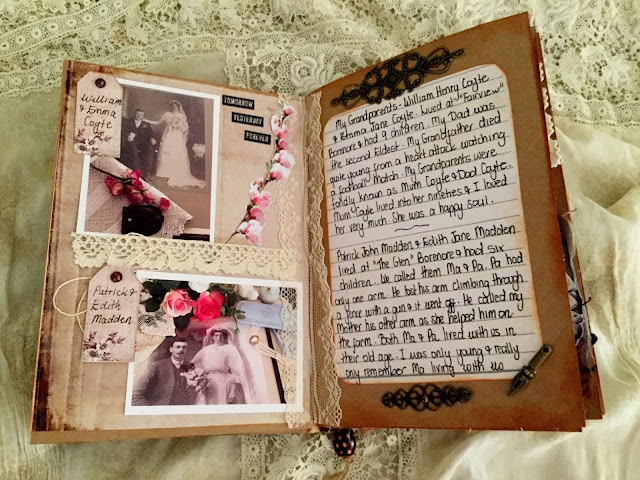 William
& Emma
Coyte
TOMORROW
YESTERDAY
FOREVER
Patrick &
Edith
Madden
My Grandparents - William Henry Coyte
& Emma Jane Coyte. Lived at "Fairview"
Borenore & had 9 children. My Dad was
the second Eldest. My Grandfather died
quite young from a heart attack watching
a football match. My Grandparents were
fondly known as Mum Coyte & Dad Coyte.
Mum Coyte lived into her nineties & I loved
her very much. She was a happy soul.
Patrick John Madden & Edith Jane Madden
lived at "The Glen" Borenore & had six
children. We called them Ma & Pa. Pa had
only one arm. He lost his arm climbing through
a fence with a gun & it went off. He called my
Mother his other arm as she helped him on
the farm. Both Ma & Pa lived with us in
their old age. I was only young & really
only remember Ma living with us